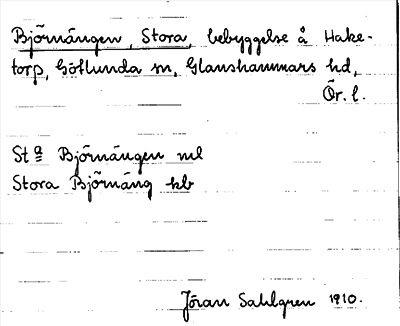 Björnängen, Stora, bebyggelse å Hake-
torp, Götlunda sn, Glanshammars hd,
Ör. l.
St<sup>a</sup> Björnängen ml
Stora Björnäng kb
Jöran Sahlgren 1910.